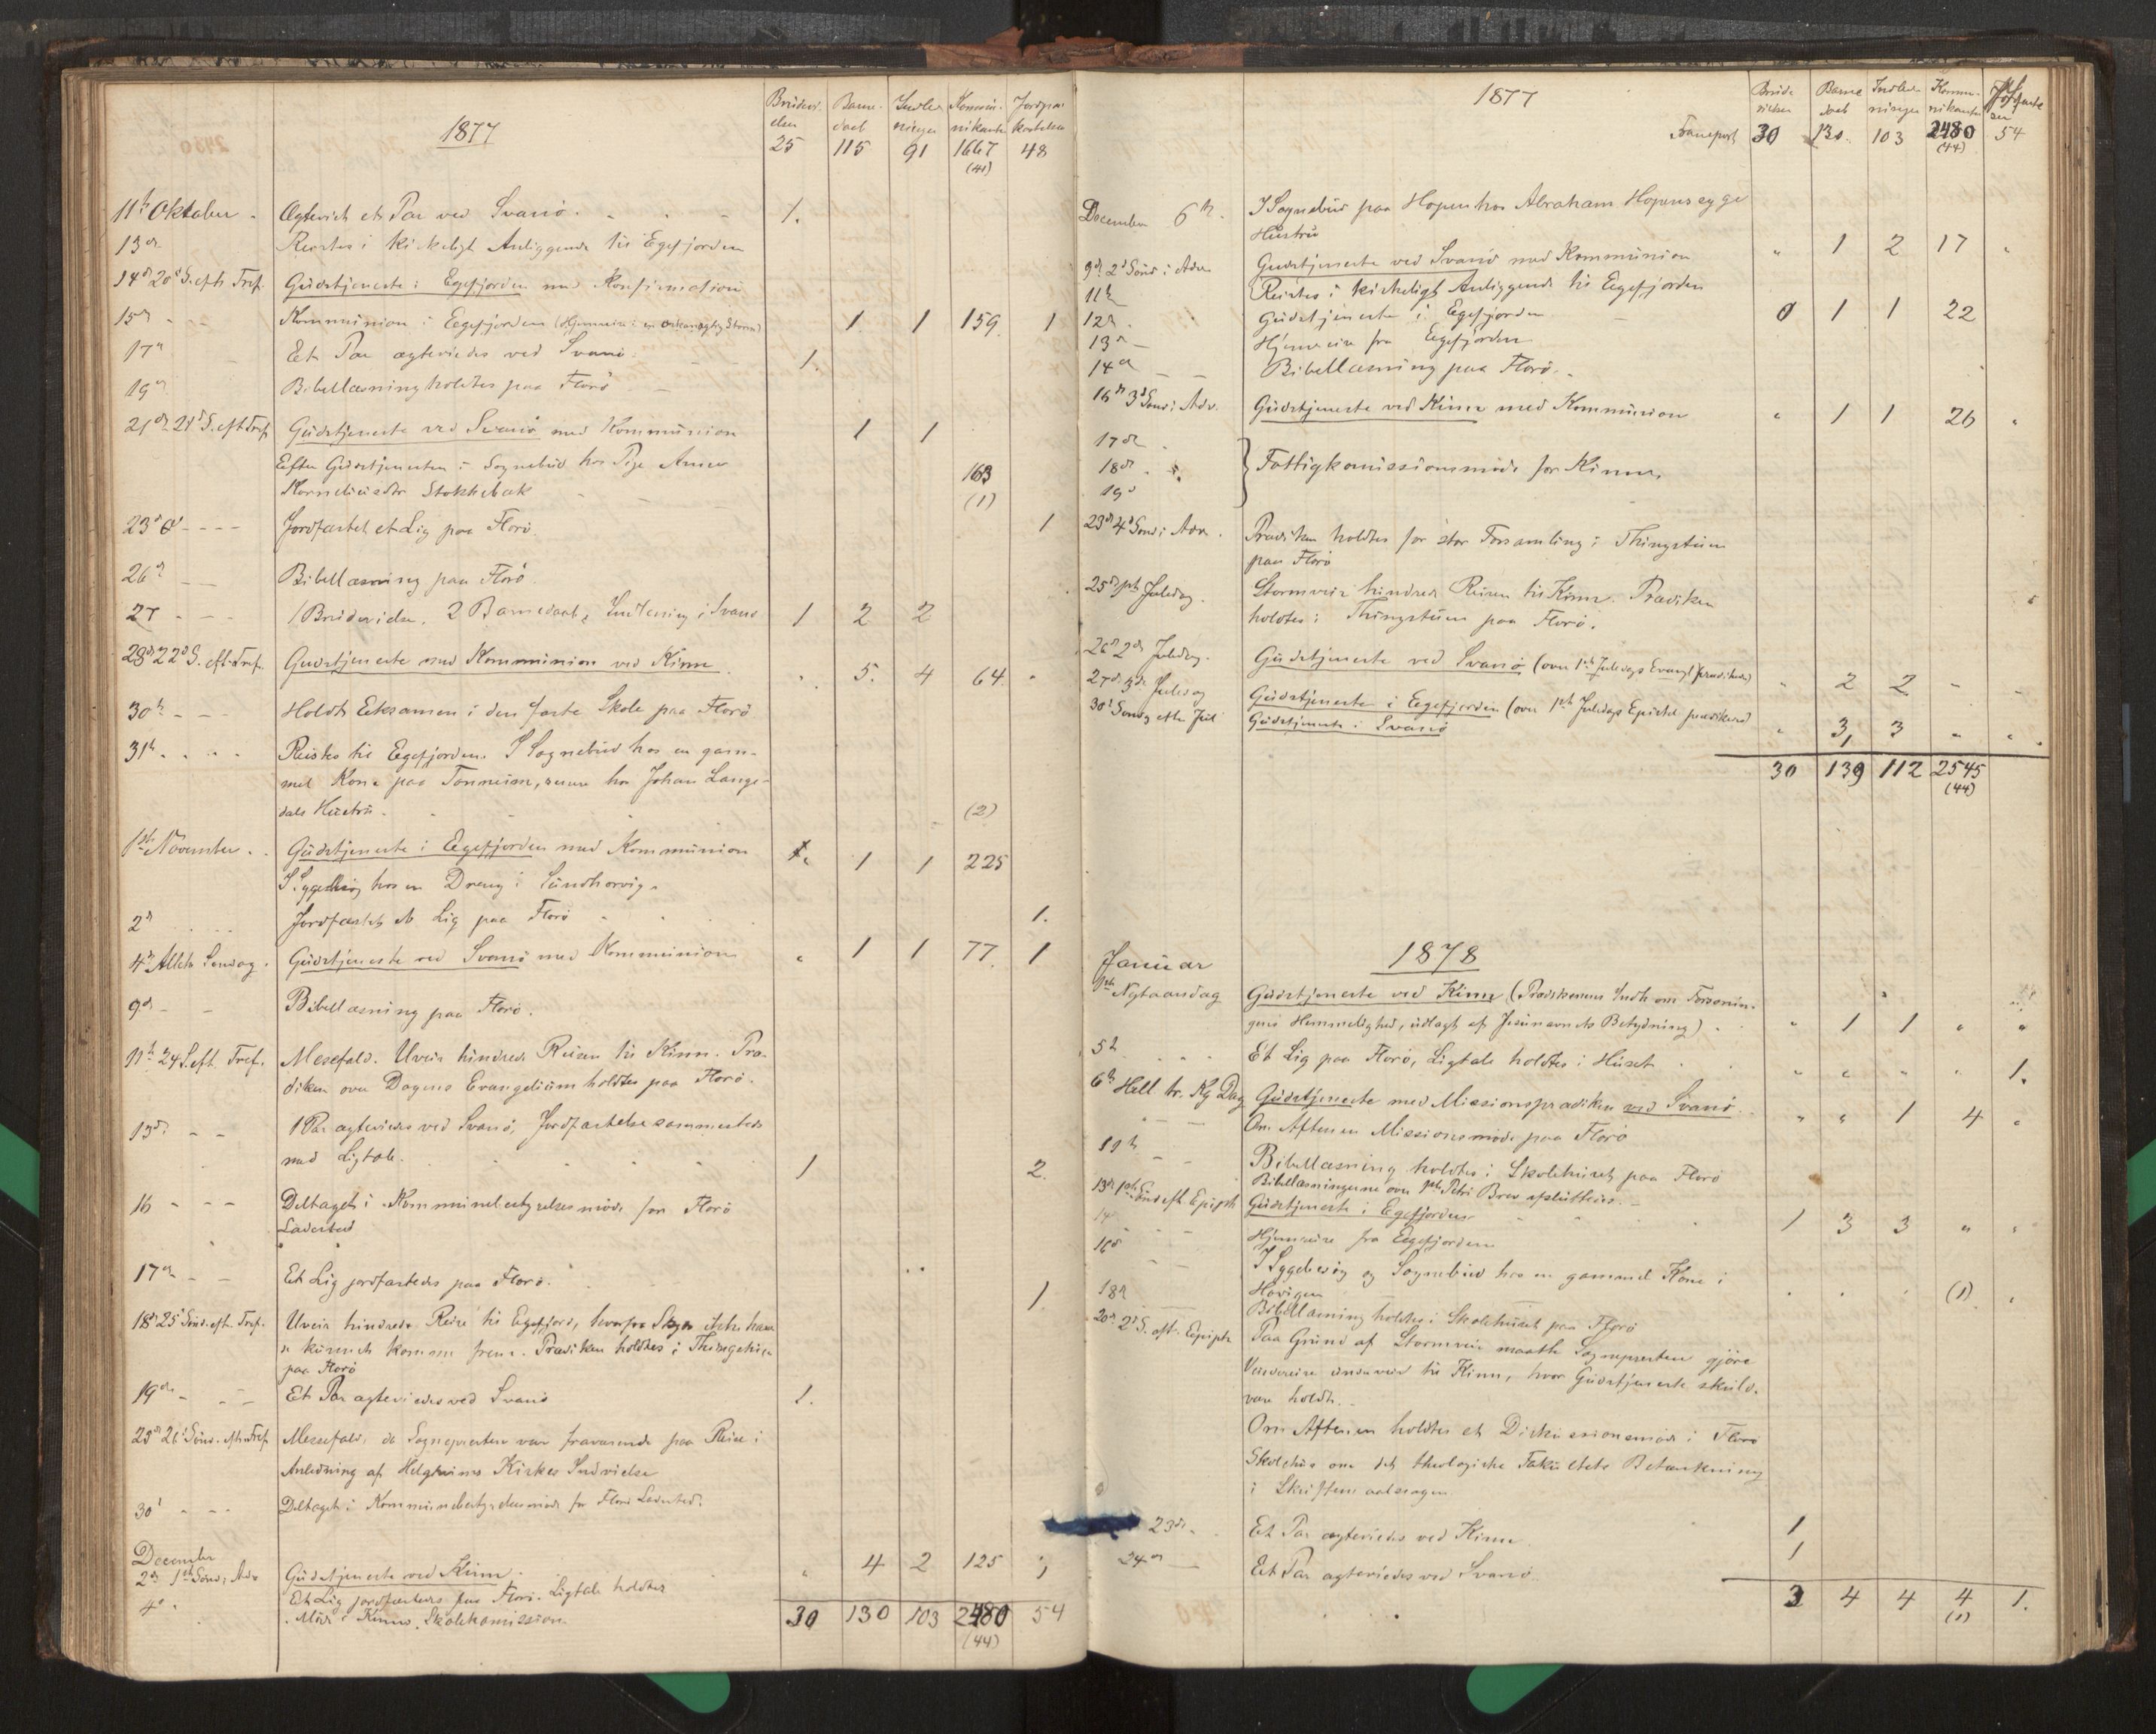 1877
Brudevi- Barne- Indled- Kommu- Jordpaa-
elser daab ninger nikanter kastelser
25 115 91 1667 48
(41)
11te Oktober - Ægteviet et Par ved Svanø. 1.
13de Reistes i kirkeligt Anliggende til Egefjorden
14de 20de S. efter Tref. Gudstjeneste i Egefjorden med Konfirmation
15de - - Kommunion i Egefjorden (Hjemreise i en Storm) 1. 1 159. 1
17de Et Par ægtevies ved Svanø. 1.
19de Bibellæsning holdtes paa Florø
21de 21de S. eft. Tref. Gudstjeneste ved Svanø med Kommunion 1 1
Efter Gudstjenesten i Sognebud hos Pige Anne
Korneliusdtr Stokkebæk 163
(1)
23de - - - - Jordfæstet et Lig paa Florø. 1
26de - - Bibellæsning paa Florø.
27 - - - 1 Brudevielse, 2 Barnedaab, Indledning i Svanø 1 2 2
28de 22de S. eft. Tref. Gudstjeneste med Kommunion ved Kinn. " 5. 4 64. "
30te - - - Holdt Eksamen i den faste Skole paa Florø
31te - - - Reiste til Egefjorden. I Sognebud hos en gam-
mel Kone paa Tonneim, samme hos Johan Lange-
dals Hustru. (2)
1ste November. . Gudstjeneste i Egefjorden med Kommunion " 1 1 225
I Sygebesøg hos en Dreng i Sundhorvig.
2de Jordfæstet et Lig paa Florø 1.
4de Alleh. Søndag. Gudstjeneste ved Svanø med Kommunion " 1 1 77. 1
9de - - Bibellæsning paa Florø.
11te 24 S. eft. Tref. Messefald. Uveir hindrede Reisen til Kinn. Præ-
diken over Dagens Evangelium holdtes paa Florø.
13de - - 1 Par ægteviedes ved Svanø, Jordfæstelse sammesteds
med Ligtale. 1 2.
16 - - - Deltaget i Kommunebestyrelsesmøde for Florø
Ladested
17de - - Et Lig jordfæstedes paa Florø. 1.
18de 25de Sønd. eft. Tref. Uveir hindrede Reise til Egefjord, hvorfra Skyds ikke havde
kunnet komme frem. Prædiken holdtes i Thingstuen
paa Florø
19de - - - Et Par ægteviedes ved Svanø 1.
25de 26de Sønd. efter Tref. Messefald, da Sognepresten var fraværende paa Reise i
Anledning af Helgheims Kirkes Indvielse
30te - - - Deltaget i Kommunebestyrelsesmøde for Florø Ladested.
December
2de 1ste Sønd. i Adv. Gudstjeneste ved Kinn. " 4 2 125 "
4de . Et Lig jordfæstedes paa Florø. Ligtale holdtes
. Møde i Kinns Skolekomission 30 130 103 2480 54
(44)
1877
Brude- Barne- Indled- Kommu- Jordfæstel-
vielser daab ninger nikanter ser
Transport 30 130. 103 2480 54
(44)
December 6te. I Sognebud paa Hopen hos Abraham Hopens syge
Hustru
9de 2den Sønd. i Adv. Gudstjeneste ved Svanø med Kommunion " 1 2 17 "
11te Reistes i kirkeligt Anliggende til Egefjorden
12te. Gudstjeneste i Egefjorden 0 1 1 22
13de - Hjemreise fra Egefjorden
14de - - Bibellæsning paa Florø.
16de 3de Sønd. i Adv. Gudstjeneste ved Kinn med Kommunion " 1 1 26 "
17de .
18de . Fattigkomissionsmøde for Kinn.
19de
23de 4de Sønd. i Adv. . Prædiken holdtes for stor Forsamling i Thingstuen
paa Florø
25de 1ste Juledag. Stormveir hindrede Reisen til Kinn. Prædiken
holdtes i Thingstuen paa Florø.
26de 2den Juledag. Gudstjeneste ved Svanø (over 1ste Juledags Evangl. prædikedes) " 2 2 - -
27de 3de Juledag Gudstjeneste i Egefjorden (over 1ste Juledags Epistel prædikedes)
30te Sønd. efter Jul Gudstjeneste i Svanø " 3, 3 - "
30 139 112 2545
(44)
1878
Januar
1ste Nytaarsdag Gudstjeneste ved Kinn (Prædikenens Indh. om Forsonin-
gens Hemmelighed, udlagt af Jesunavnets Betydning). " 1 1 " "
5te . . . Et Lig paa Florø, Ligtale holdtes i Huset " " " " 1.
6te Hell. tr. Kg Dag Gudstjeneste med Missionsprædiken ved Svanø. " " 1 4 "
Om Aftenen Missionsmøde paa Florø
11te - - Bibellæsning holdtes i Skolehuset paa Florø
Bibellæsningerne over 1ste Petri Brev afsluttedes. -
13de 1ste Sønd. eft. Epiph. Gudstjeneste i Egefjorden 1 3 3 " "
14de - - Hjemreise fra Egefjorden
16de - - I Sygebesøg og Sognebud hos en gammel Kone i
Høvigen (1)
18de Bibellæsning holdtes i Skolehuset paa Florø
20de 2de S. eft. Epiph. Paa Grund af Stormveir maatte Sognepresten gjøre
Vendereise underveis til Kinn, hvor Gudstjeneste skulde
være holdt.
Om Aftenen holdtes et Diskussionsmøde i Florø
Skolehus om det theologiske Fakultets Betænkning
i Skriftemaalssagen.
23de. Et Par ægteviedes ved Kinn. 1
24de - Et Par ægteviedes ved Svanø. 1
3 4 4 4 1.
(1)